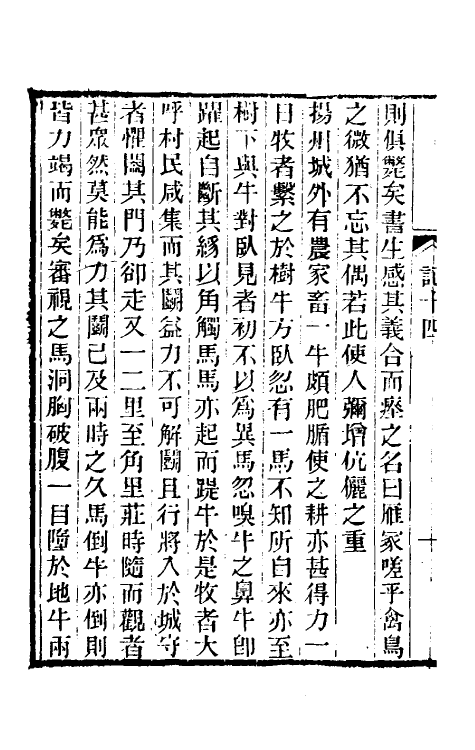 記十四
十
則俱斃矣書生感其義合而瘞之名曰雁冢嗟乎禽鳥
之微猶不忘其偶若此使人彌增伉儷之重
揚州城外有農家畜一牛頗肥腯使之耕亦甚得力一
日牧者繫之於樹牛方臥忽有一馬不知所自來亦至
樹下與牛對臥見者初不以爲異馬忽嗅牛之鼻牛卽
躍起自斷其綠以角觸馬馬亦起而踶牛於是牧者大
呼村民咸集而其鬬益力不可解鬬且行將入於城守
者懼闔其門乃卻走又一二里至角里莊時隨而觀者
甚眾然莫能爲力其鬬已及兩時之久馬倒牛亦倒則
皆力竭而斃矣審視之馬洞胸破腹一目墮於地牛兩